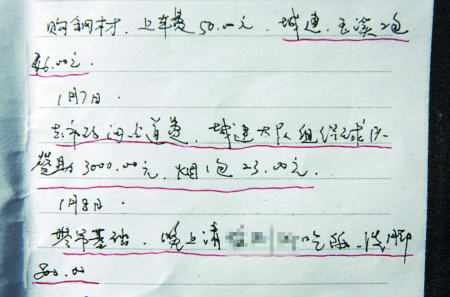 购钢材，上车费50.00元，城建，玉溪2包
46.00元。
1月7日.
去市场沟通道差，城建大队组织球队
赞助3000.00元，烟1包23.00元.
1月8日.
整吊基础，晚上请 吃饭、洗脚
800.00